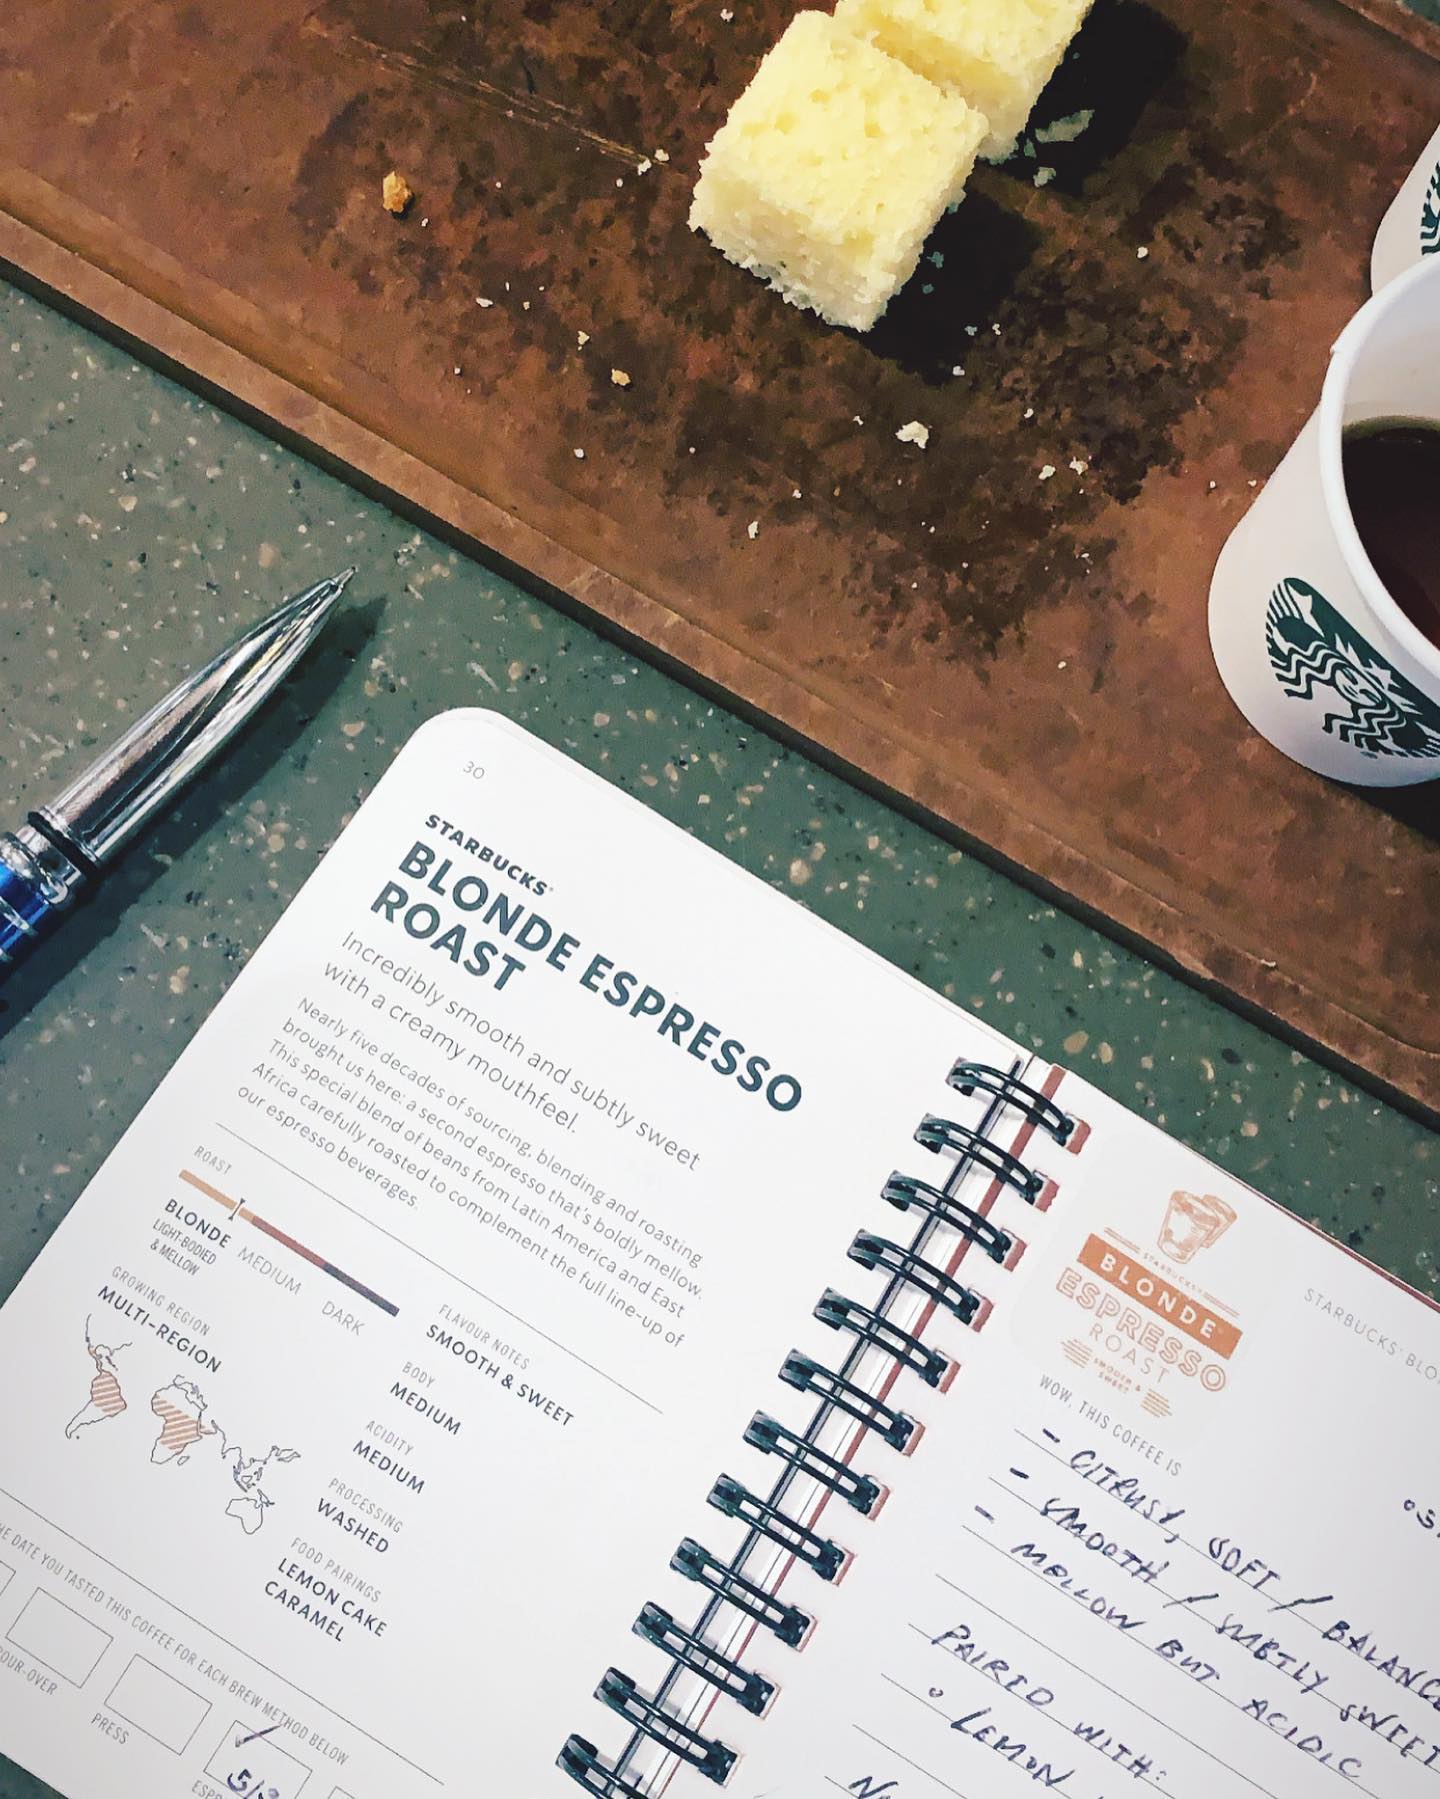 30
STARBUCKS®
BLONDE ESPRESSO
ROAST
Incredibly smooth and subtly sweet
with a creamy mouthfeel.
Nearly five decades of sourcing, blending and roasting
brought us here: a second espresso that's boldly mellow.
This special blend of beans from Latin America and East
Africa carefully roasted to complement the full line-up of
our espresso beverages.
ROAST
BLONDE
LIGHT-BODIED
& MELLOW
MEDIUM
DARK
GROWING REGION
MULTI-REGION
FLAVOUR NOTES
SMOOTH & SWEET
BODY
MEDIUM
ACIDITY
MEDIUM
PROCESSING
WASHED
FOOD PAIRINGS
LEMON CAKE
CARAMEL
DATE YOU TASTED THIS COFFEE FOR EACH BREW METHOD BELOW
POUR-OVER
PRESS
STARBUCKS®
BLONDE
ESPRESSO
ROAST
SMOOTH &
SWEET
STARBUCKS®
WOW, THIS COFFEE IS
- CITRUSY, SOFT /
- SMOOTH / SUBTLY SWEET
- MELLOW BUT ACIDIC
PAIRED WITH:
° LEMON